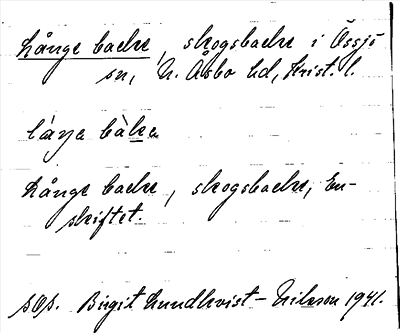 Långe backe, skogsbacke i Össjö
sn, N. Åsbo hd, Krist. l.
låŋa bàkɐ
Långe backe, skogsbacke, En-
skiftet.
sOs. Birgit Lundkvist-Nilsson 1941.